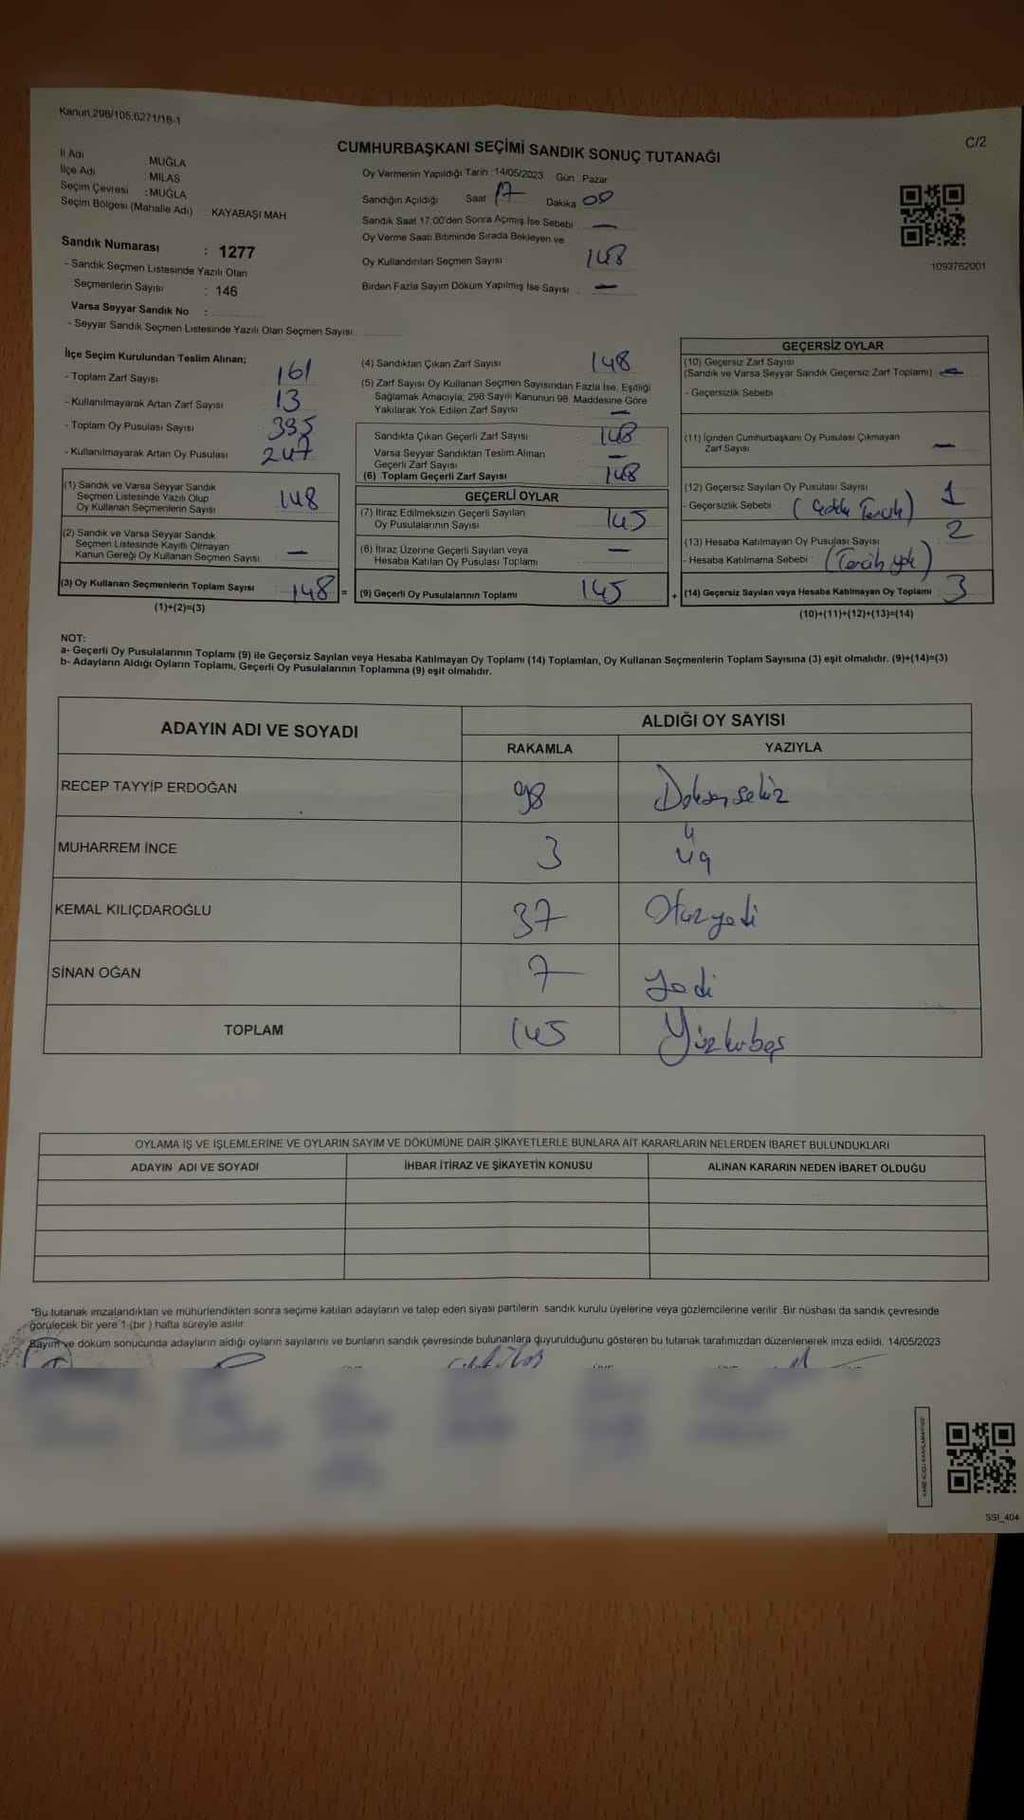 Kanun.298/105.6271/18-1
C/2
CUMHURBAŞKANI SEÇİMİ SANDIK SONUÇ TUTANAĞI
İl Adı : MUĞLA
İlçe Adı : MİLAS
Seçim Çevresi : MUĞLA
Seçim Bölgesi (Mahalle Adı) KAYABAŞI MAH
Sandık Numarası : 1277
- Sandık Seçmen Listesinde Yazılı Olan
Seçmenlerin Sayısı : 146
Varsa Seyyar Sandık No :
- Seyyar Sandık Seçmen Listesinde Yazılı Olan Seçmen Sayısı
Oy Vermenin Yapıldığı Tarih :14/05/2023 Gün : Pazar
Sandığın Açıldığı Saat 17 Dakika 00
Sandık Saat 17:00'den Sonra Açmış İse Sebebi —
Oy Verme Saati Bitiminde Sırada Bekleyen ve
Oy Kullandırılan Seçmen Sayısı 148
Birden Fazla Sayım Döküm Yapılmış İse Sayısı —
1093762001
İlçe Seçim Kurulundan Teslim Alınan;
- Toplam Zarf Sayısı 161
- Kullanılmayarak Artan Zarf Sayısı 13
- Toplam Oy Pusulası Sayısı 395
- Kullanılmayarak Artan Oy Pusulası 247
(1) Sandık ve Varsa Seyyar Sandık
Seçmen Listesinde Yazılı Olup
Oy Kullanan Seçmenlerin Sayısı 148
(2) Sandık ve Varsa Seyyar Sandık
Seçmen Listesinde Kayıtlı Olmayan
Kanun Gereği Oy Kullanan Seçmen Sayısı —
(3) Oy Kullanan Seçmenlerin Toplam Sayısı 148 =
(1)+(2)=(3)
(4) Sandıktan Çıkan Zarf Sayısı 148
(5) Zarf Sayısı Oy Kullanan Seçmen Sayısından Fazla İse, Eşitliği
Sağlamak Amacıyla, 298 Sayılı Kanunun 98. Maddesine Göre
Yakılarak Yok Edilen Zarf Sayısı —
Sandıkta Çıkan Geçerli Zarf Sayısı 148
Varsa Seyyar Sandıktan Teslim Alınan
Geçerli Zarf Sayısı —
(6) Toplam Geçerli Zarf Sayısı 148
GEÇERLİ OYLAR
(7) İtiraz Edilmeksizin Geçerli Sayılan
Oy Pusulalarının Sayısı 145
(8) İtiraz Üzerine Geçerli Sayılan veya
Hesaba Katılan Oy Pusulası Toplamı —
(9) Geçerli Oy Pusulalarının Toplamı 145 +
GEÇERSİZ OYLAR
(10) Geçersiz Zarf Sayısı
(Sandık ve Varsa Seyyar Sandık Geçersiz Zarf Toplamı) —
- Geçersizlik Sebebi
(11) İçinden Cumhurbaşkanı Oy Pusulası Çıkmayan
Zarf Sayısı —
(12) Geçersiz Sayılan Oy Pusulası Sayısı 1
- Geçersizlik Sebebi
(13) Hesaba Katılmayan Oy Pusulası Sayısı 2
- Hesaba Katılmama Sebebi (Tercih yok)
(14) Geçersiz Sayılan veya Hesaba Katılmayan Oy Toplamı 3
(10)+(11)+(12)+(13)=(14)
NOT:
a- Geçerli Oy Pusulalarının Toplamı (9) ile Geçersiz Sayılan veya Hesaba Katılmayan Oy Toplamı (14) Toplamları, Oy Kullanan Seçmenlerin Toplam Sayısına (3) eşit olmalıdır. (9)+(14)=(3)
b- Adayların Aldığı Oyların Toplamı, Geçerli Oy Pusulalarının Toplamına (9) eşit olmalıdır.
ADAYIN ADI VE SOYADI ALDIĞI OY SAYISI
RAKAMLA YAZIYLA
RECEP TAYYİP ERDOĞAN 98 Doksan sekiz
MUHARREM İNCE 3 üç
KEMAL KILIÇDAROĞLU 37 Otuz yedi
SİNAN OĞAN 7 Yedi
TOPLAM 145 Yüzkırkbeş
OYLAMA İŞ VE İŞLEMLERİNE VE OYLARIN SAYIM VE DÖKÜMÜNE DAİR ŞİKAYETLERLE BUNLARA AİT KARARLARIN NELERDEN İBARET BULUNDUKLARI
ADAYIN ADI VE SOYADI İHBAR İTİRAZ VE ŞİKAYETİN KONUSU ALINAN KARARIN NEDEN İBARET OLDUĞU
*Bu tutanak imzalandıktan ve mühürlendikten sonra seçime katılan adayların ve talep eden siyasi partilerin sandık kurulu üyelerine veya gözlemcilerine verilir. Bir nüshası da sandık çevresinde
görülecek bir yere 1 (bir) hafta süreyle asılır.
Sayım ve döküm sonucunda adayların aldığı oyların sayılarını ve bunların sandık çevresinde bulunanlara duyurulduğunu gösteren bu tutanak tarafımızdan düzenlenerek imza edildi. 14/05/2023
SSI_404